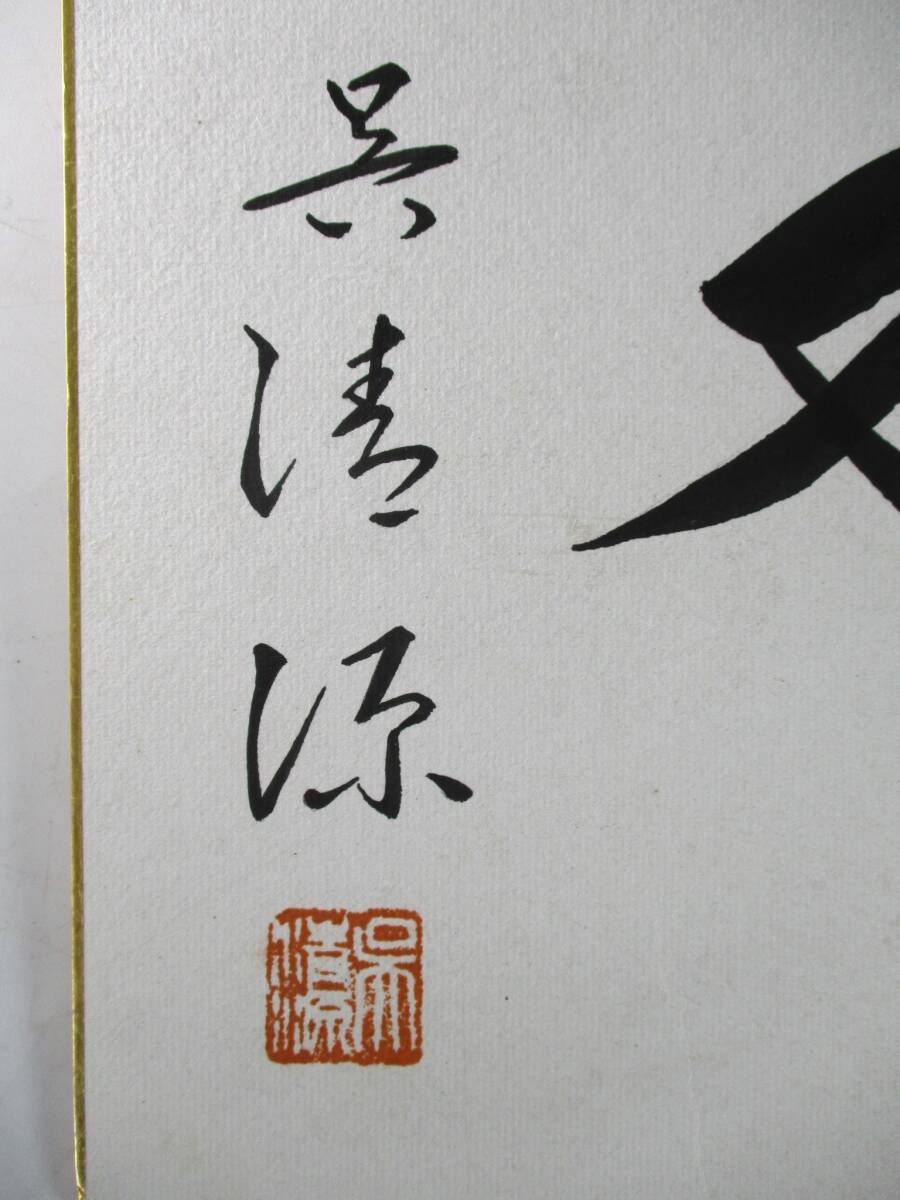 呉清源
呉清源